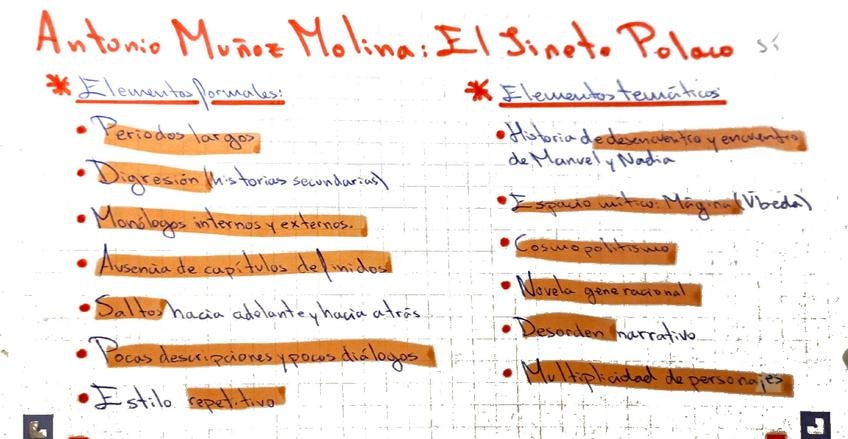 Antonio Muñoz Molina: El Jinete Polaco sí
* Elementos formales:
• Periodos largos
• Digresión (historias secundarias)
• Monólogos internos y externos.
• Ausencia de capítulos definidos
• Saltos hacia adelante y hacia atrás
• Pocas descripciones y pocos diálogos
• Estilo repetitivo
* Elementos temáticos
• Historia de desencuentro y encuentro
de Manuel y Nadia
• Espacio mítico: Mágina (Úbeda)
• Cosmopolitismo
• Novela generacional
• Desorden narrativo
• Multiplicidad de personajes